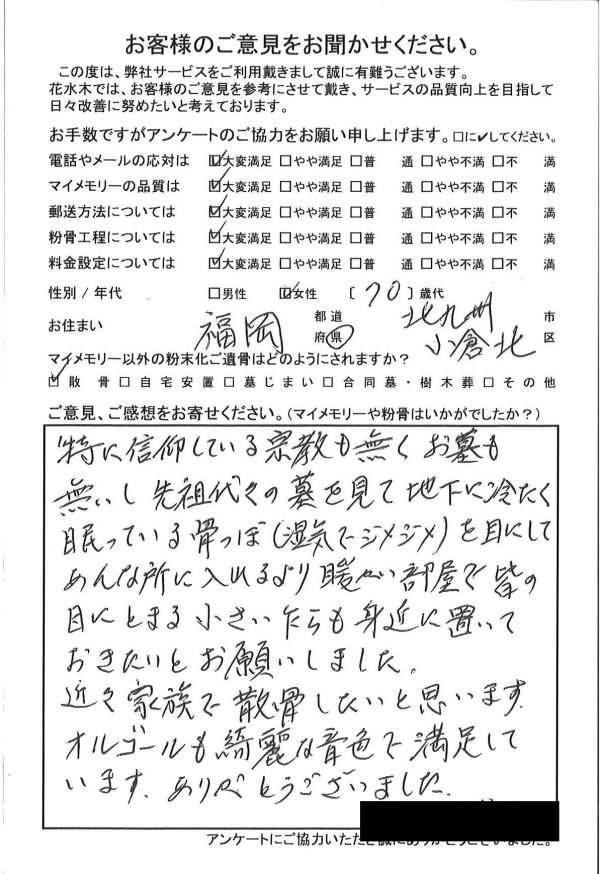 お客様のご意見をお聞かせください。
この度は、弊社サービスをご利用戴きまして誠に有難うございます。
花水木では、お客様のご意見を参考にさせて戴き、サービスの品質向上を目指して
日々改善に努めたいと考えております。
お手数ですがアンケートのご協力をお願い申し上げます。□に✔してください。
電話やメールの応対は ☑大変満足 □やや満足 □普 通 □やや不満 □不 満
マイメモリーの品質は ☑大変満足 □やや満足 □普 通 □やや不満 □不 満
郵送方法については ☑大変満足 □やや満足 □普 通 □やや不満 □不 満
粉骨工程については ☑大変満足 □やや満足 □普 通 □やや不満 □不 満
料金設定については ☑大変満足 □やや満足 □普 通 □やや不満 □不 満
性別 / 年代 □男性 ☑女性 〔 70 〕歳代
お住まい 福岡 都 道 府 県 北九州 市 小倉北 区
マイメモリー以外の粉末化ご遺骨はどのようにされますか？
☑散 骨 □自宅安置 □墓じまい □合同墓・樹木葬 □その他
ご意見、ご感想をお寄せください。(マイメモリーや粉骨はいかがでしたか？)
特に信仰している宗教も無く お墓も
無いし 先祖代々の墓を見て 地下に冷たく
眠っている骨つぼ(湿気でジメジメ)を目にして
あんな所に入れるより 暖かい部屋で皆の
目にとまる 小さい 身近に置いて
おきたいとお願いしました。
近々家族で散骨したいと思います。
オルゴールも綺麗な音色で満足して
います。ありがとうございました。
アンケートにご協力いただき誠にありがとうございました。